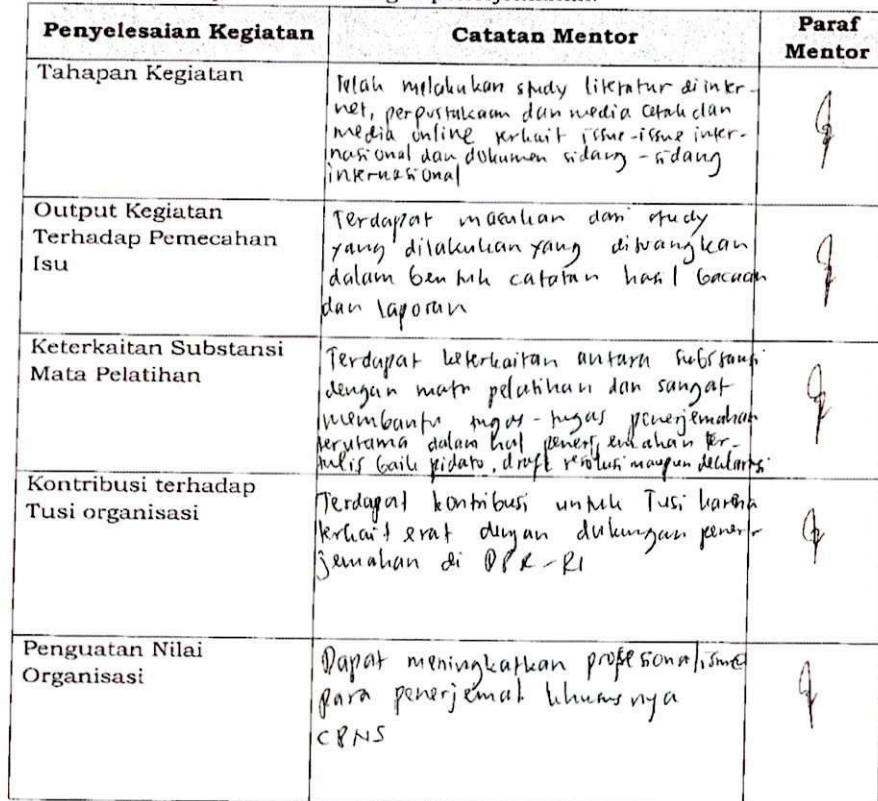 Penyelesaian Kegiatan
Catatan Mentor
Paraf
Mentor
Tahapan Kegiatan
Telah melakukan study literatur di inter-
net, perpustakaan dan media cetak dan
media online terkait issue-issue inter-
nasional dan dokumen sidang-sidang
internasional
Output Kegiatan
Terhadap Pemecahan
Isu
Terdapat masukan dari study
yang dilakukan yang dituangkan
dalam bentuk catatan hasil bacaan
dan laporan
Keterkaitan Substansi
Mata Pelatihan
Terdapat keterkaitan antara substansi
dengan mata pelatihan dan sangat
membantu tugas-tugas penerjemahan
terutama dalam hal penerjemahan ter-
tulis baik pidato, draft resolusi maupun deklarasi
Kontribusi terhadap
Tusi organisasi
Terdapat kontribusi untuk Tusi karena
terkait erat dengan dukungan pener-
jemahan di DPR-RI
Penguatan Nilai
Organisasi
Dapat meningkatkan profesionalisme
para penerjemah khususnya
CPNS